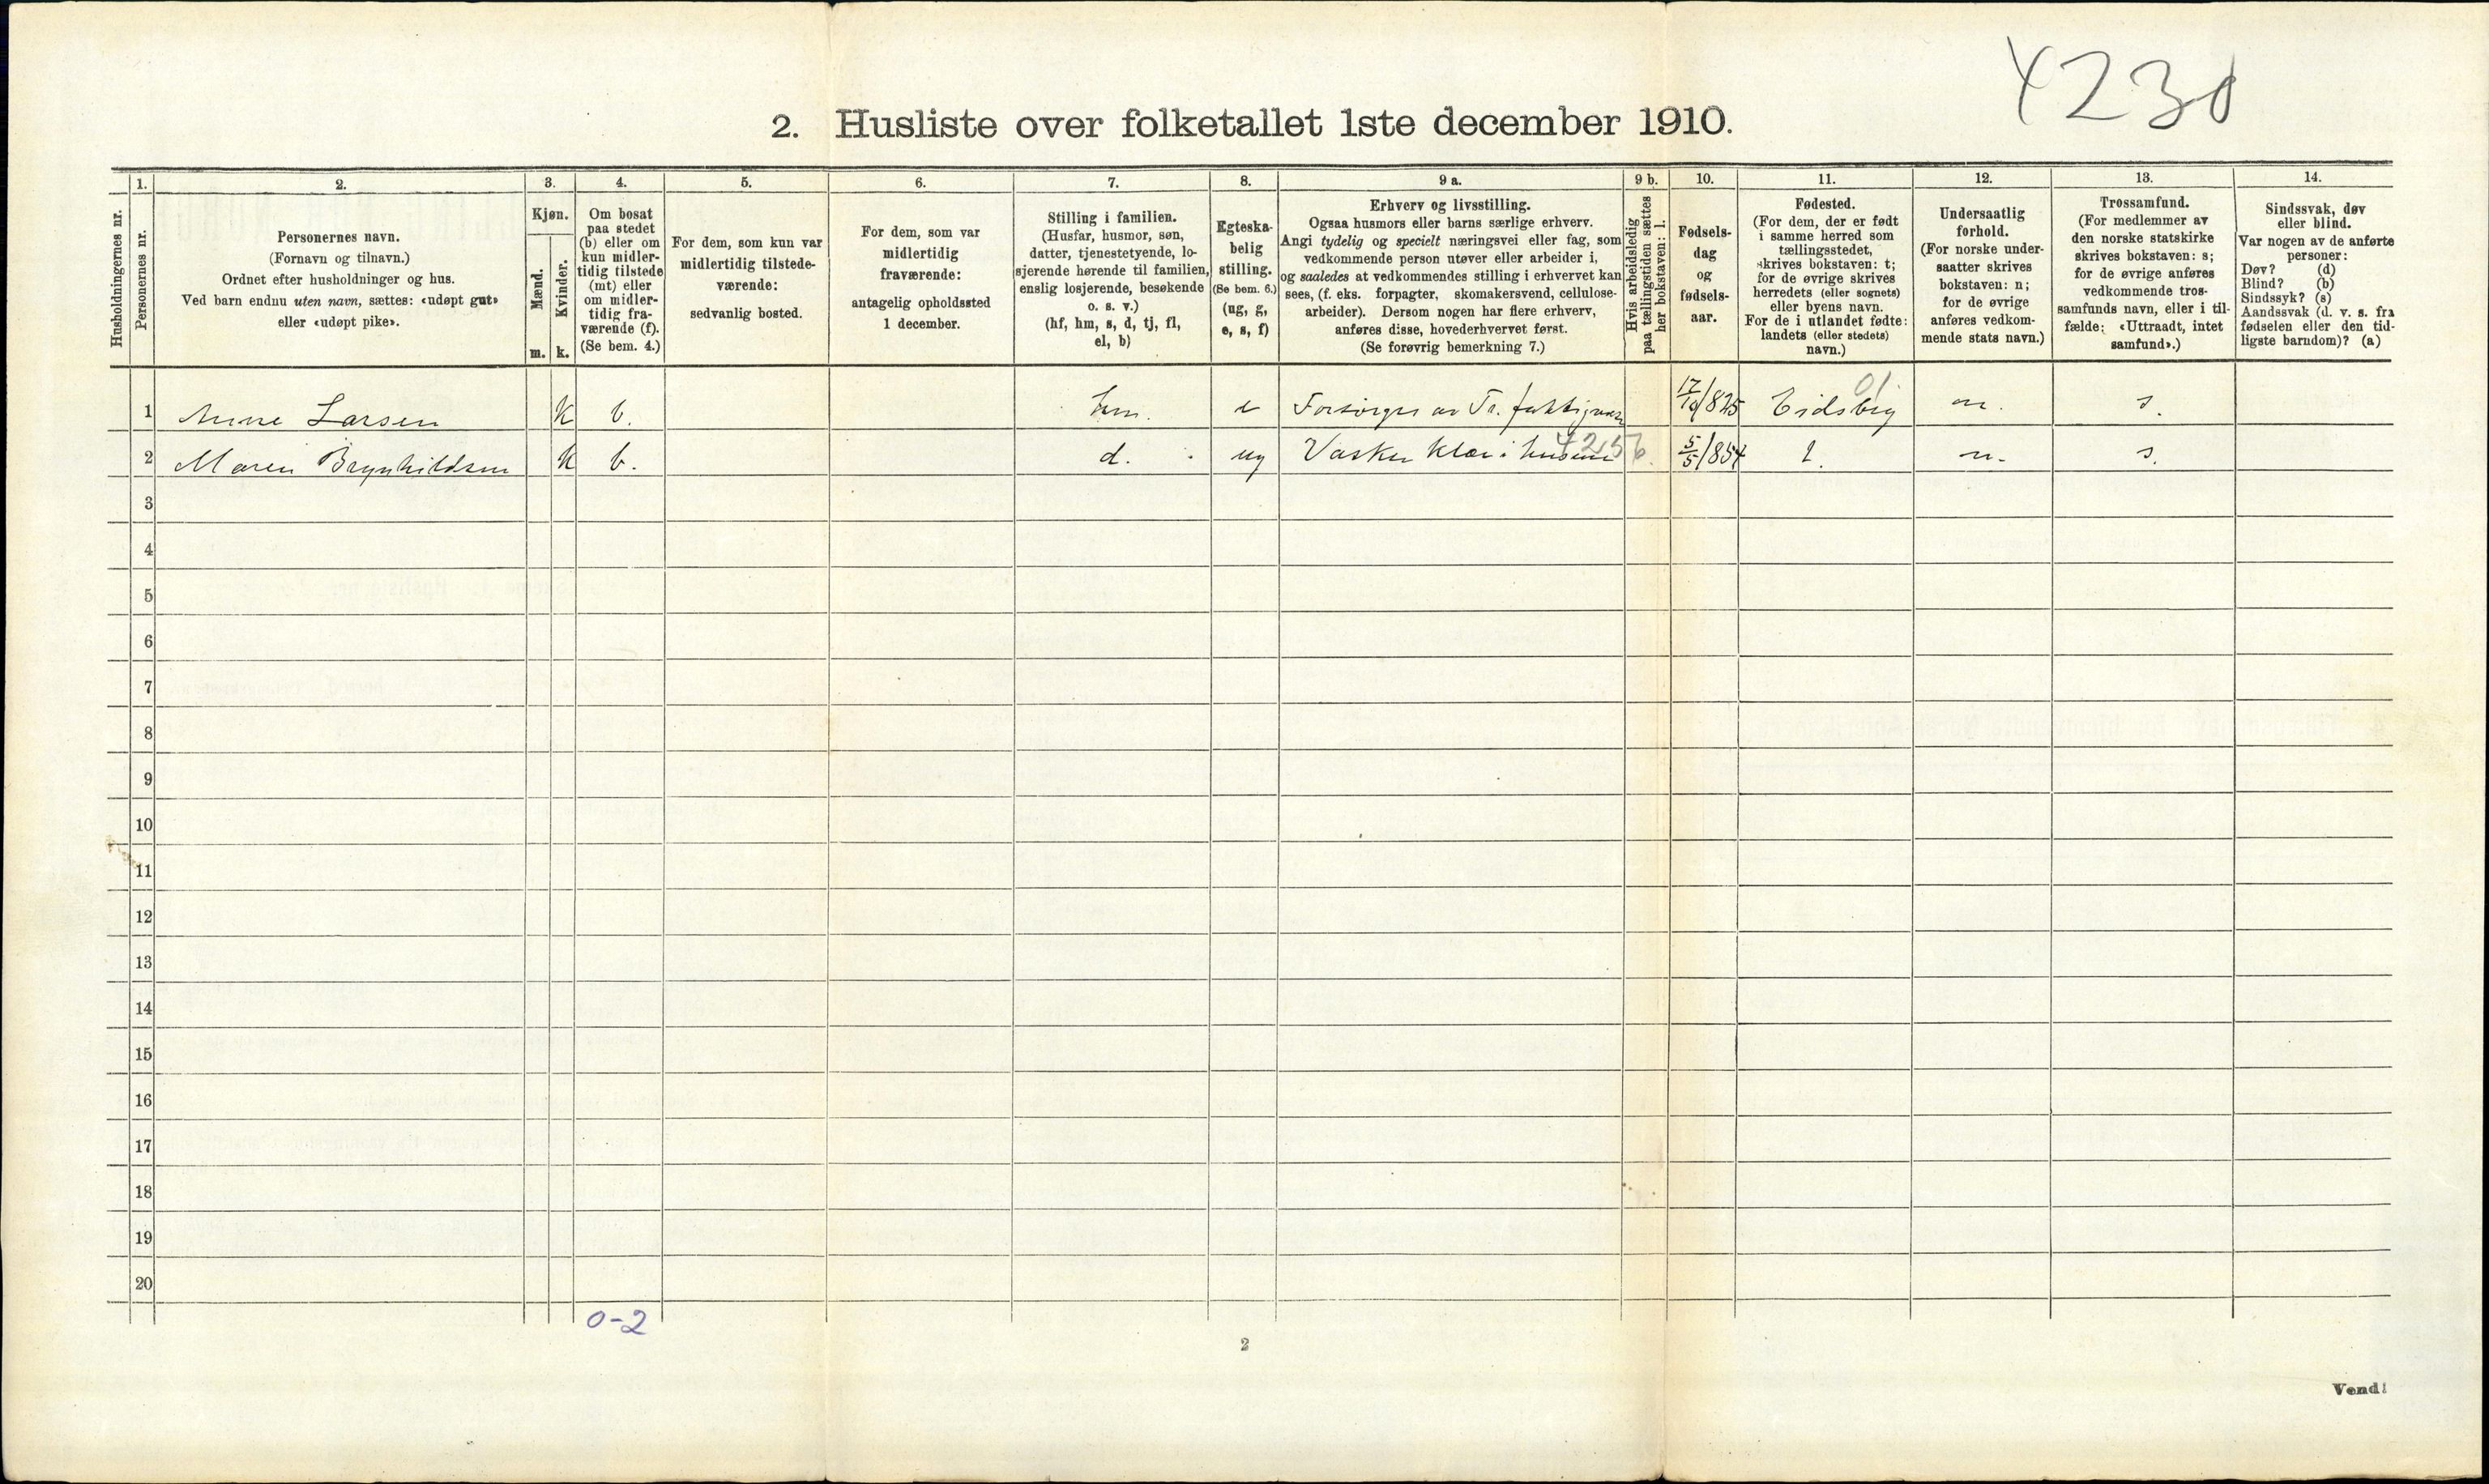 4230
2. Husliste over folketallet 1ste december 1910.
1. 2. 3. 4. 5. 6. 7. 8. 9 a. 9 b. 10. 11. 12. 13. 14.
Husholdningernes nr.
Personernes nr.
Personernes navn.
(Fornavn og tilnavn.)
Ordnet efter husholdninger og hus.
Ved barn endnu uten navn, sættes: «udøpt gut»
eller «udøpt pike».
Kjøn.
Mænd.
Kvinder.
m. k.
Om bosat
paa stedet
(b) eller om
kun midler-
tidig tilstede
(mt) eller
om midler-
tidig fra-
værende (f).
(Se bem. 4.)
For dem, som kun var
midlertidig tilstede-
værende:
sedvanlig bosted.
For dem, som var
midlertidig
fraværende:
antagelig opholdssted
1 december.
Stilling i familien.
(Husfar, husmor, søn,
datter, tjenestetyende, lo-
sjerende hørende til familien,
enslig losjerende, besøkende
o. s. v.)
(hf, hm, s, d, tj, fl,
el, b)
Egteska-
belig
stilling.
(Se bem. 6.)
(ug, g,
e, s, f)
Erhverv og livsstilling.
Ogsaa husmors eller barns særlige erhverv.
Angi tydelig og specielt næringsvei eller fag, som
vedkommende person utøver eller arbeider i,
og saaledes at vedkommendes stilling i erhvervet kan
sees, (f. eks. forpagter, skomakersvend, cellulose-
arbeider). Dersom nogen har flere erhverv,
anføres disse, hovederhvervet først.
(Se forøvrig bemerkning 7.)
Hvis arbeidsledig
paa tællingstiden sættes
her bokstaven: l.
Fødsels-
dag
og
fødsels-
aar.
Fødested.
(For dem, der er født
i samme herred som
tællingsstedet,
skrives bokstaven: t;
for de øvrige skrives
herredets (eller sognets)
eller byens navn.
For de i utlandet fødte:
landets (eller stedets)
navn.)
Undersaatlig
forhold.
(For norske under-
saatter skrives
bokstaven: n;
for de øvrige
anføres vedkom-
mende stats navn.)
Trossamfund.
(For medlemmer av
den norske statskirke
skrives bokstaven: s;
for de øvrige anføres
vedkommende tros-
samfunds navn, eller i til-
fælde: «Uttraadt, intet
samfund».)
Sindssvak, døv
eller blind.
Var nogen av de anførte
personer:
Døv? (d)
Blind? (b)
Sindssyk? (s)
Aandssvak (d. v. s. fra
fødselen eller den tid-
ligste barndom)? (a)
01
1 Anne Larsen K b. hm. e Forsørges av Tr. fattigvæsen 17/10/825 Eidsberg n. s.
4256
2 Maren Brynhildsen K b. d. ug Vasker klær i husene 5/5/854 t. n. s.
3
4
5
6
7
8
9
10
11
12
13
14
15
16
17
18
19
20
0-2
2
Vend!